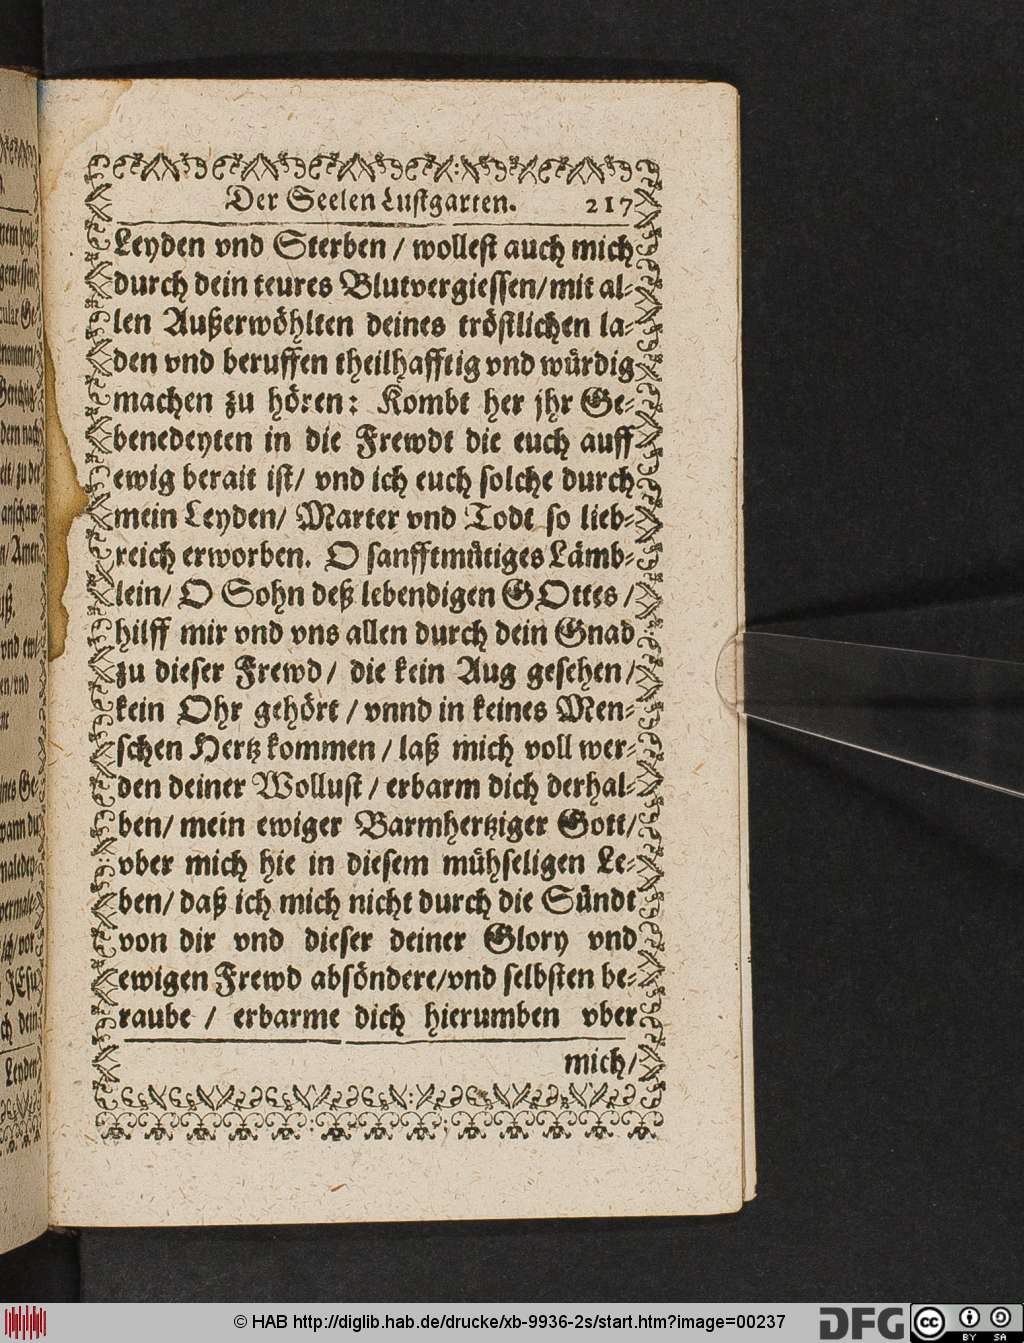 Der Seelen Lustgarten. 217
Leyden vnd Sterben / wollest auch mich
durch dein teures Blutvergiessen/mit al-
len Außerwöhlten deines tröstlichen la-
den vnd beruffen theilhafftig vnd würdig
machen zu hören: Kombt her jhr Ge-
benedeyten in die Frewdt die euch auff
ewig berait ist/ vnd ich euch solche durch
mein Leyden/ Marter vnd Todt so lieb-
reich erworben. O sanfftmütiges Lämb-
lein/ O Sohn deß lebendigen GOttes /
hilff mir vnd vns allen durch dein Gnad
zu dieser Frewd/ die kein Aug gesehen/
kein Ohr gehört / vnnd in keines Men-
schen Hertz kommen / laß mich voll wer-
den deiner Wollust / erbarm dich derhal-
ben/ mein ewiger Barmhertziger Gott/
vber mich hie in diesem mühseligen Le-
ben/ daß ich mich nicht durch die Sündt
von dir vnd dieser deiner Glory vnd
ewigen Frewd absöndere/vnd selbsten be-
raube / erbarme dich hierumben vber
mich/
© HAB http://diglib.hab.de/drucke/xb-9936-2s/start.htm?image=00237
DFG
cc BY SA